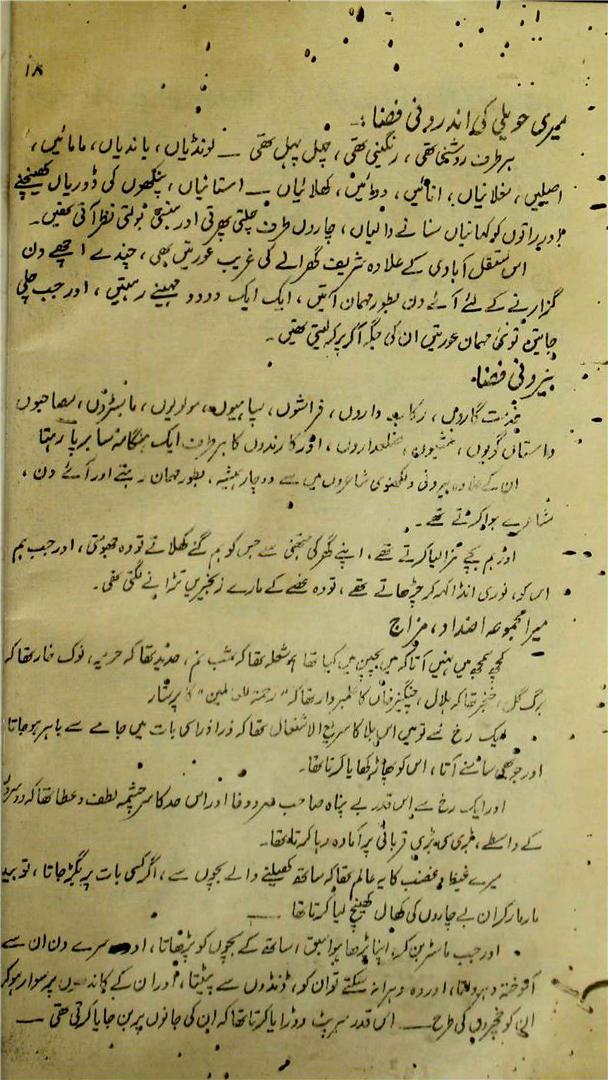 ۱۸
میری حویلی کی اندرونی فضا :۔
ہر طرف روشنی تھی، رنگینی تھی، چہل پہل تھی ــ لونڈیاں، باندیاں، مامائیں،
اصلیں، مغلانیاں، انائیں، ددائیں، کھلائیاں ــ استانیاں، پنکھوں کی ڈوریاں کھینچنے
اور راتوں کو کہانیاں سنانے والیاں، چاروں طرف چلتی پھرتی اور ہنستی بولتی نظر آتی تھیں۔
اس مستقل آبادی کے علاوہ شریف گھرانے کی غریب عورتیں بھی، چندے اچھے دن
گزارنے کے لئے آئے دن بطور مہمان آتیں، ایک ایک دو دو مہینے رہتیں، اور جب چلی
جاتیں تو نئی مہمان عورتیں ان کی جگہ آکر پر کر لیتی تھیں۔
بیرونی فضا۔
خدمت گاروں، رکاب داروں، فراشوں، سپاہیوں، مولویوں، ماسٹروں، مصاحبوں
داستاں گویوں، منشیوں، ضلعداروں، اور کارندوں کا ہر طرف ایک ہنگامہ سا برپا رہتا
ان کے علاوہ بیرونی و لکھنوی شاعروں میں سے دو چار ہمیشہ، بطور مہمان رہتے اور آئے دن،
مشاعرے ہوا کرتے تھے۔
اور ہم بچے تڑا لیا کرتے تھے، اپنے گھر کی ہتھنی سے جس کو ہم گنے کھلاتے تو وہ جھومتی، اور جب ہم
اس کو، نوری انڈا کہہ کر چڑھاتے تھے، تو وہ غصے کے مارے زنجیریں تڑانے لگتی تھی۔
میرا مجموعہ اضداد، مزاج
کچھ سمجھ میں نہیں آتا کہ میں بچپن میں کیا تھا شعلہ تھا کہ شبنم، حدید تھا کہ حریر، نوک خار تھا کہ
برگ گل، خنجر تھا کہ ہلال، چنگیز خاں کا علمبردار تھا کہ "رحمتہ للعالمین" کا پرستار
ایک رخ سے تو میں اس بلا کا سریع الاشتعال تھا کہ ذرا ذرا سی بات میں جامے سے باہر ہو جاتا
اور جو بھی سامنے آتا، اس کو پھاڑ کھایا کرتا تھا۔
اور ایک رخ سے اس قدر بے پناہ صاحب مہر و وفا اور اس حد کا سرچشمہ لطف و عطا تھا کہ دوسروں
کے واسطے، بڑی سی بڑی قربانی پر آمادہ رہا کرتا تھا۔
میرے غیظ و غضب کا یہ عالم تھا کہ ساتھ کھیلنے والے بچوں سے، اگر کسی بات پر بگڑ جاتا، تو بید
مار مار کر ان بے چاروں کی کھال کھینچ لیا کرتا تھا ــ
اور جب ماسٹر بن کر اپنا پڑھا ہوا سبق، ساتھ کے بچوں کو پڑھاتا، اور دوسرے دن ان سے
آموختہ دہرواتا، اور وہ دہرا نہ سکتے تو ان کو، ڈنڈوں سے پیٹتا، اور ان کے کاندھوں پر سوار ہو کر
ان کو خچروں کی طرح ــ اس قدر سرپٹ دوڑایا کرتا تھا کہ ان کی جانوں پر بن جایا کرتی تھی ــ